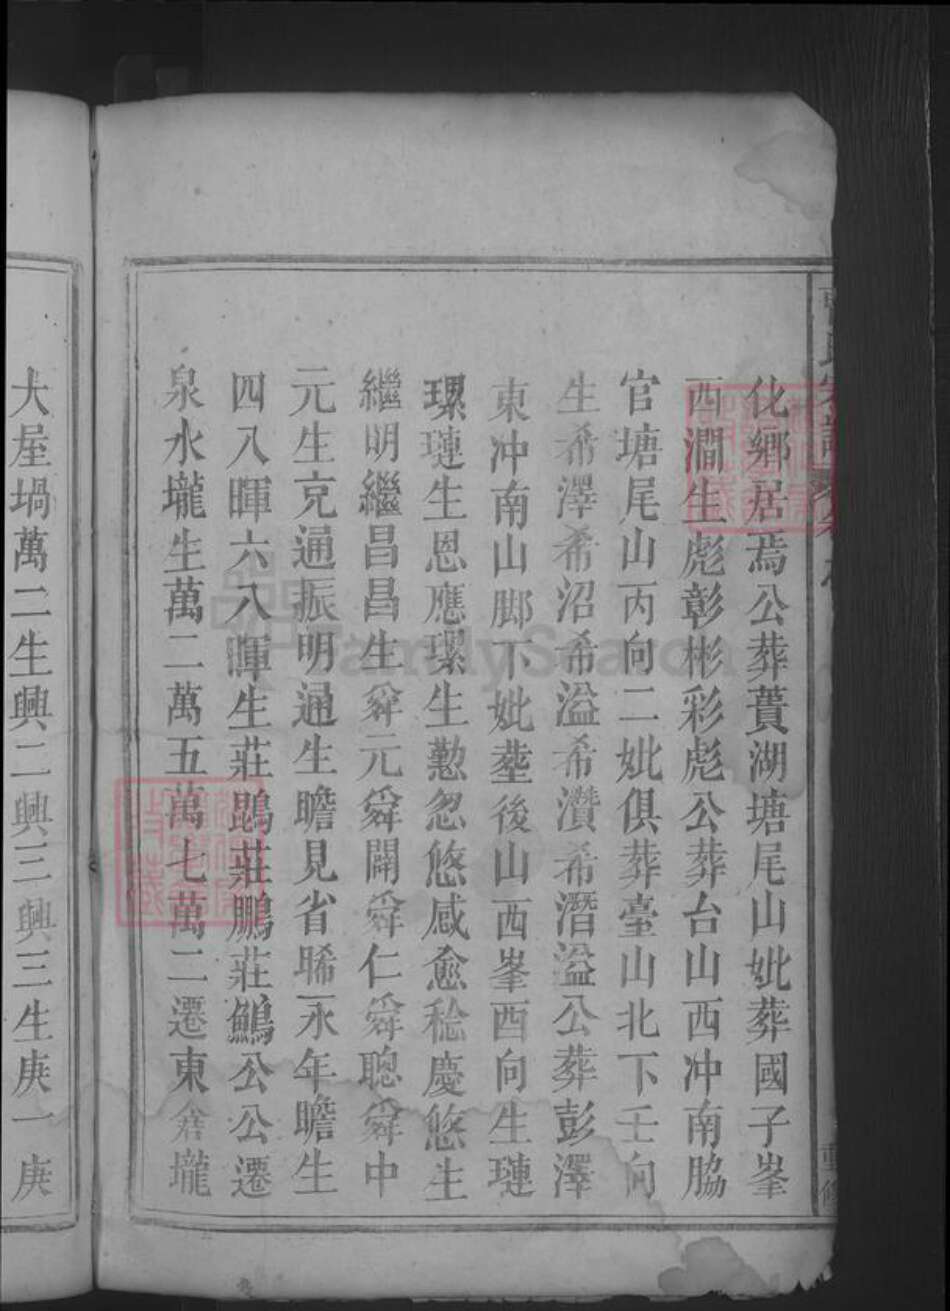 化鄉居焉公葬蕢湖塘尾山妣葬國子峯
西澗生彪彰彬彩彪公葬台山西冲南脇
官塘尾山丙向二妣俱葬臺山北下壬向
生希澤希沼希溢希瓚希潛溢公葬彭澤
東冲南山脚下妣塟後山西峯酉向生璉
璟璉生恩應璟生懃忽悠感愈稔慶悠生
繼明繼昌昌生舜元舜闢舜仁舜聰舜中
元生克通振明通生瞻見省晞永年瞻生
四八暉六八暉生莊鵾莊鵬莊鷦公公遷
泉水壠生萬二萬五萬七萬二遷東畬壠
大屋堝萬二生興二興三興三生庚一庚
FamilySearch